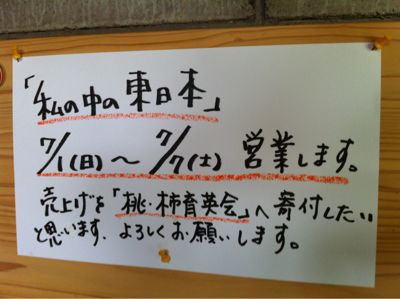 「私の中の東日本」
7/1(日)〜7/7(土) 営業します。
売上げを「桃・柿育英会」へ寄付したい
と思います。よろしくお願いします。